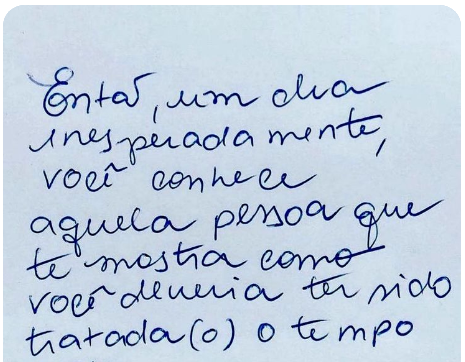 Então, um dia
inesperadamente,
você conhece
aquela pessoa que
te mostra como
você deveria ter sido
tratada(o) o tempo